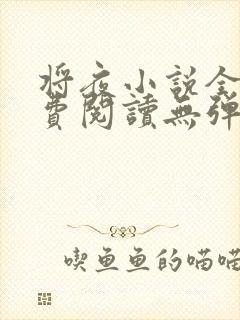 将夜小说全
費閱讀無彈
喫鱼鱼的喵喵